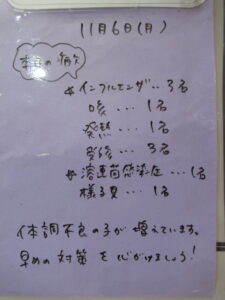 11月6日(月)
本日の病欠
※インフルエンザ‥3名
咳 … 1名
発熱 … 1名
発疹 … 3名
※溶連菌感染症 … 1名
様子見 … 1名
体調不良の子が増えています。
早めの対策を心がけましょう!